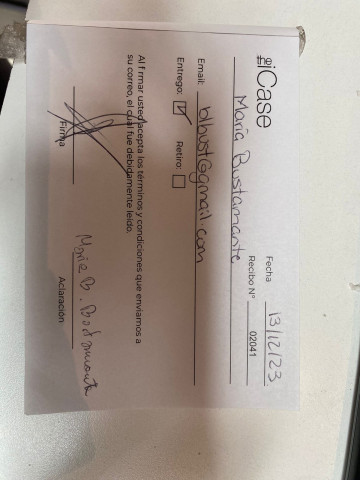 the iCase
Fecha 13/12/23
Recibo N° 02041
María Bustamante
Email: blbust@gmail.com
Entrego: ☑ Retiro: ☐
Al firmar usted acepta los términos y condiciones que enviamos a
su correo, el cual fue debidamente leído.
Maria B. Bustamante
Firma Aclaración